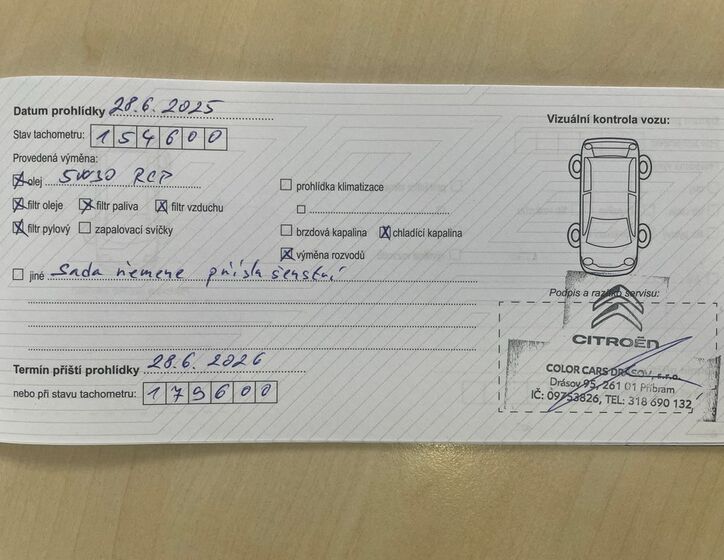 Datum prohlídky 28.6.2025
Stav tachometru: 154600
Provedená výměna:
olej 5W30 RCP
filtr oleje filtr paliva filtr vzduchu
filtr pylový zapalovací svíčky
prohlídka klimatizace
brzdová kapalina chladící kapalina
výměna rozvodů
jiné Sada řemene přísla šenství
Termín příští prohlídky 28.6.2026
nebo při stavu tachometru: 179600
Vizuální kontrola vozu:
Podpis a razítko servisu:
CITROËN
COLOR CARS DRÁSOV, s.r.o.
Drásov 95, 261 01 Příbram
IČ: 09753826, TEL: 318 690 132